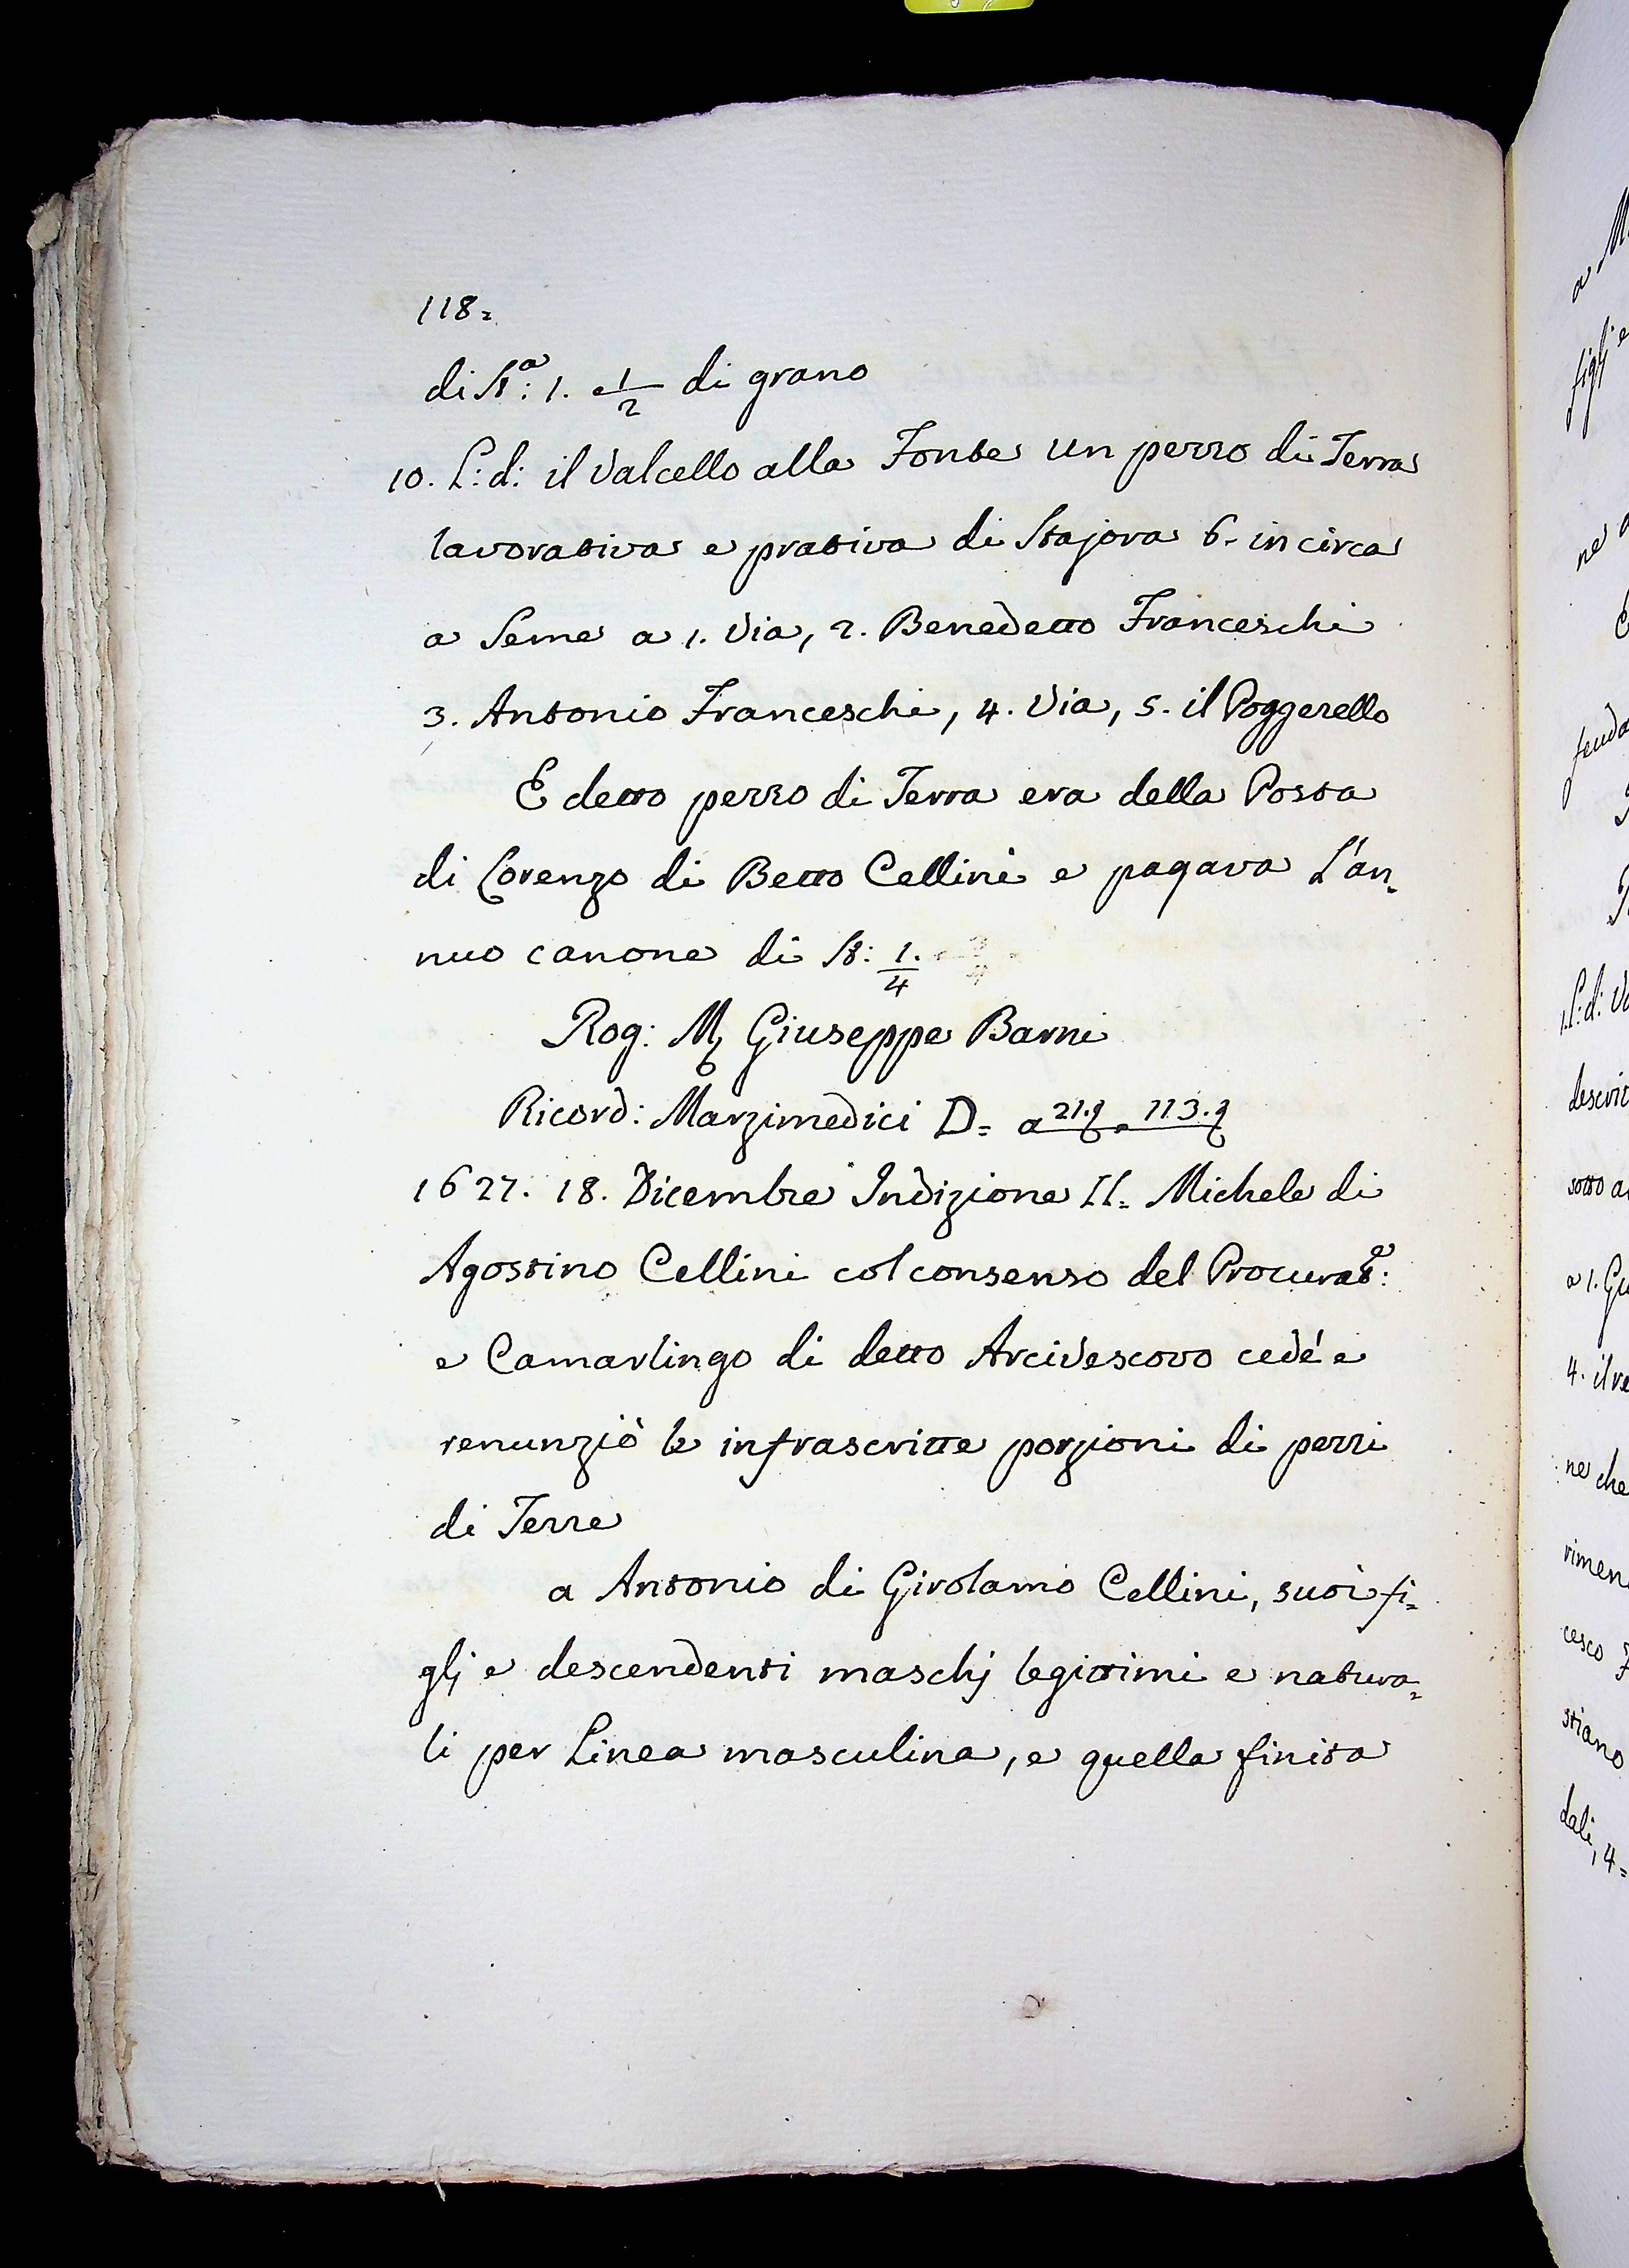 118=
di St.a: 1. e 1/2 di grano
10. L: d: il Valcello alla Fonte un pezzo di Terra
lavorativa e prativa di Stajora 6. in circa
a Seme a 1. Via, 2. Benedetto Franceschi
3. Antonio Franceschi, 4. Via, 5. il Poggerello
E detto pezzo di Terra era della Posta
di Lorenzo di Betto Cellini e pagava L'an=
nuo canone di St: 1/4
Rog: M Giuseppe Barni
Ricord: Marzimedici D= a 21. e 113.
1627. 18. Dicembre Indizione II= Michele di
Agostino Cellini col consenso del Procurat.e:
e Camarlingo di detto Arcivescovo cedé e
renunziò le infrascritte porzioni di pezzi
di Terre
a Antonio di Girolamo Cellini, suoi fi=
glj e descendenti maschj legittimi e natura=
li per Linea masculina, e quella finita
a M
figlj e
ne
feuda
L: d: Va
descrit
sotto a
a 1. Giu
4. il re
ne che
rimen
cesco F
stiano
dali, 4=